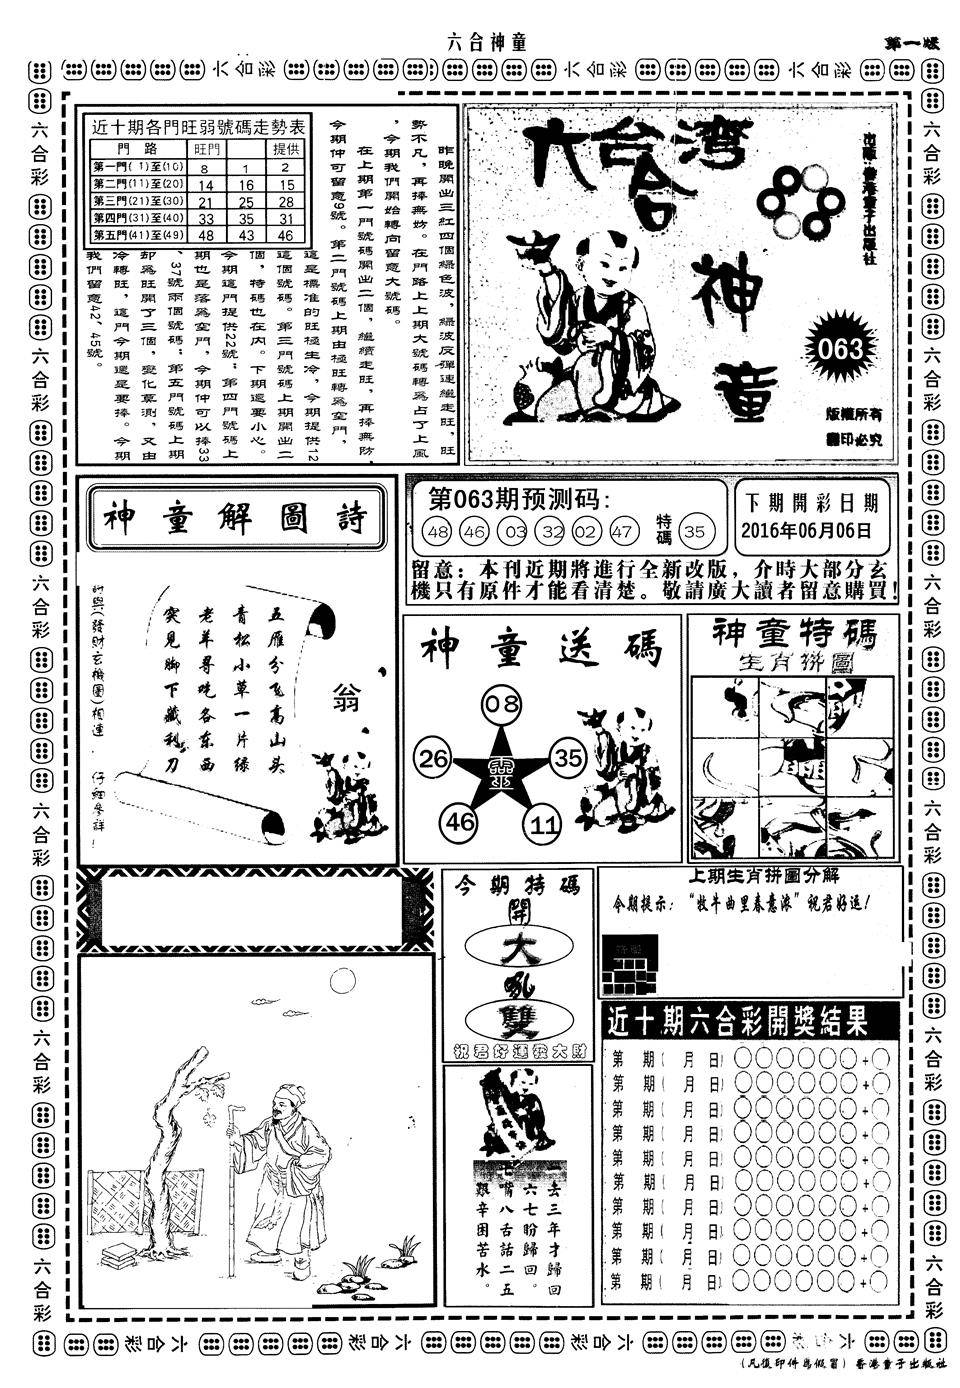 六合神童
第一版
近十期各門旺弱號碼走勢表
門 路 旺門 提供
第一門( 1)至(10) 8 1 2
第二門(11)至(20) 14 16 15
第三門(21)至(30) 21 25 28
第四門(31)至(40) 33 35 31
第五門(41)至(49) 48 43 46
昨晚開出三紅四個綠色波，綠波反彈連繼走旺，旺
勢不凡，再捧無妨。在門路上上期大號碼轉爲占了上風
，今期我們開始轉向留意大號碼。
在上期第一門號碼開出二個，繼續走旺，再捧無防，
今期仲可留意9號。第二門號碼上期由極旺轉爲空門，
這是標准的旺極生冷，今期提供12
這個號碼。第三門號碼上期開出二
個，特碼也在内。下期還要小心。
今期這門提供22號；第四門號碼上
期也是落爲空門，今期仲可以捧33
、37號兩個號碼；第五門號碼上期
却爲旺開了三個，變化莫測，又由
冷轉旺，這門今期還是要捧。今期
我們留意42、45號。
六合台湾
神
童
063
版權所有
翻印必究
神童解圖詩
五雁分飞高山头
青松小草一片绿
老羊寻吃各东西
突见脚下藏利刀
翁
詩與(發財玄機圖)相連 仔細參詳!
第063期预测码:
48 46 03 32 02 47 特碼 35
下期開彩日期
2016年06月06日
留意：本刊近期將進行全新改版，介時大部分玄
機只有原件才能看清楚。敬請廣大讀者留意購買!
神童送碼
08
26 靈 35
46 11
神童特碼
生肖拼圖
今期特碼
開
大
亂
雙
祝君好運發大財
上期生肖拼圖分解
今期提示：“牧牛曲里春意浓”祝君好运!
一去三年才歸回
六七盼歸回。
七嘴八舌話二五
艱辛困苦水。
近十期六合彩開獎結果
第 期( 月 日) +
第 期( 月 日) +
第 期( 月 日) +
第 期( 月 日) +
第 期( 月 日) +
第 期( 月 日) +
第 期( 月 日) +
第 期( 月 日) +
第 期( 月 日) +
第 期( 月 日) +
六合彩 六合彩 六合彩
六合彩 六合彩 六合彩 六合彩 六合彩 六合彩
(凡復印件爲假冒) 香港童子出版社